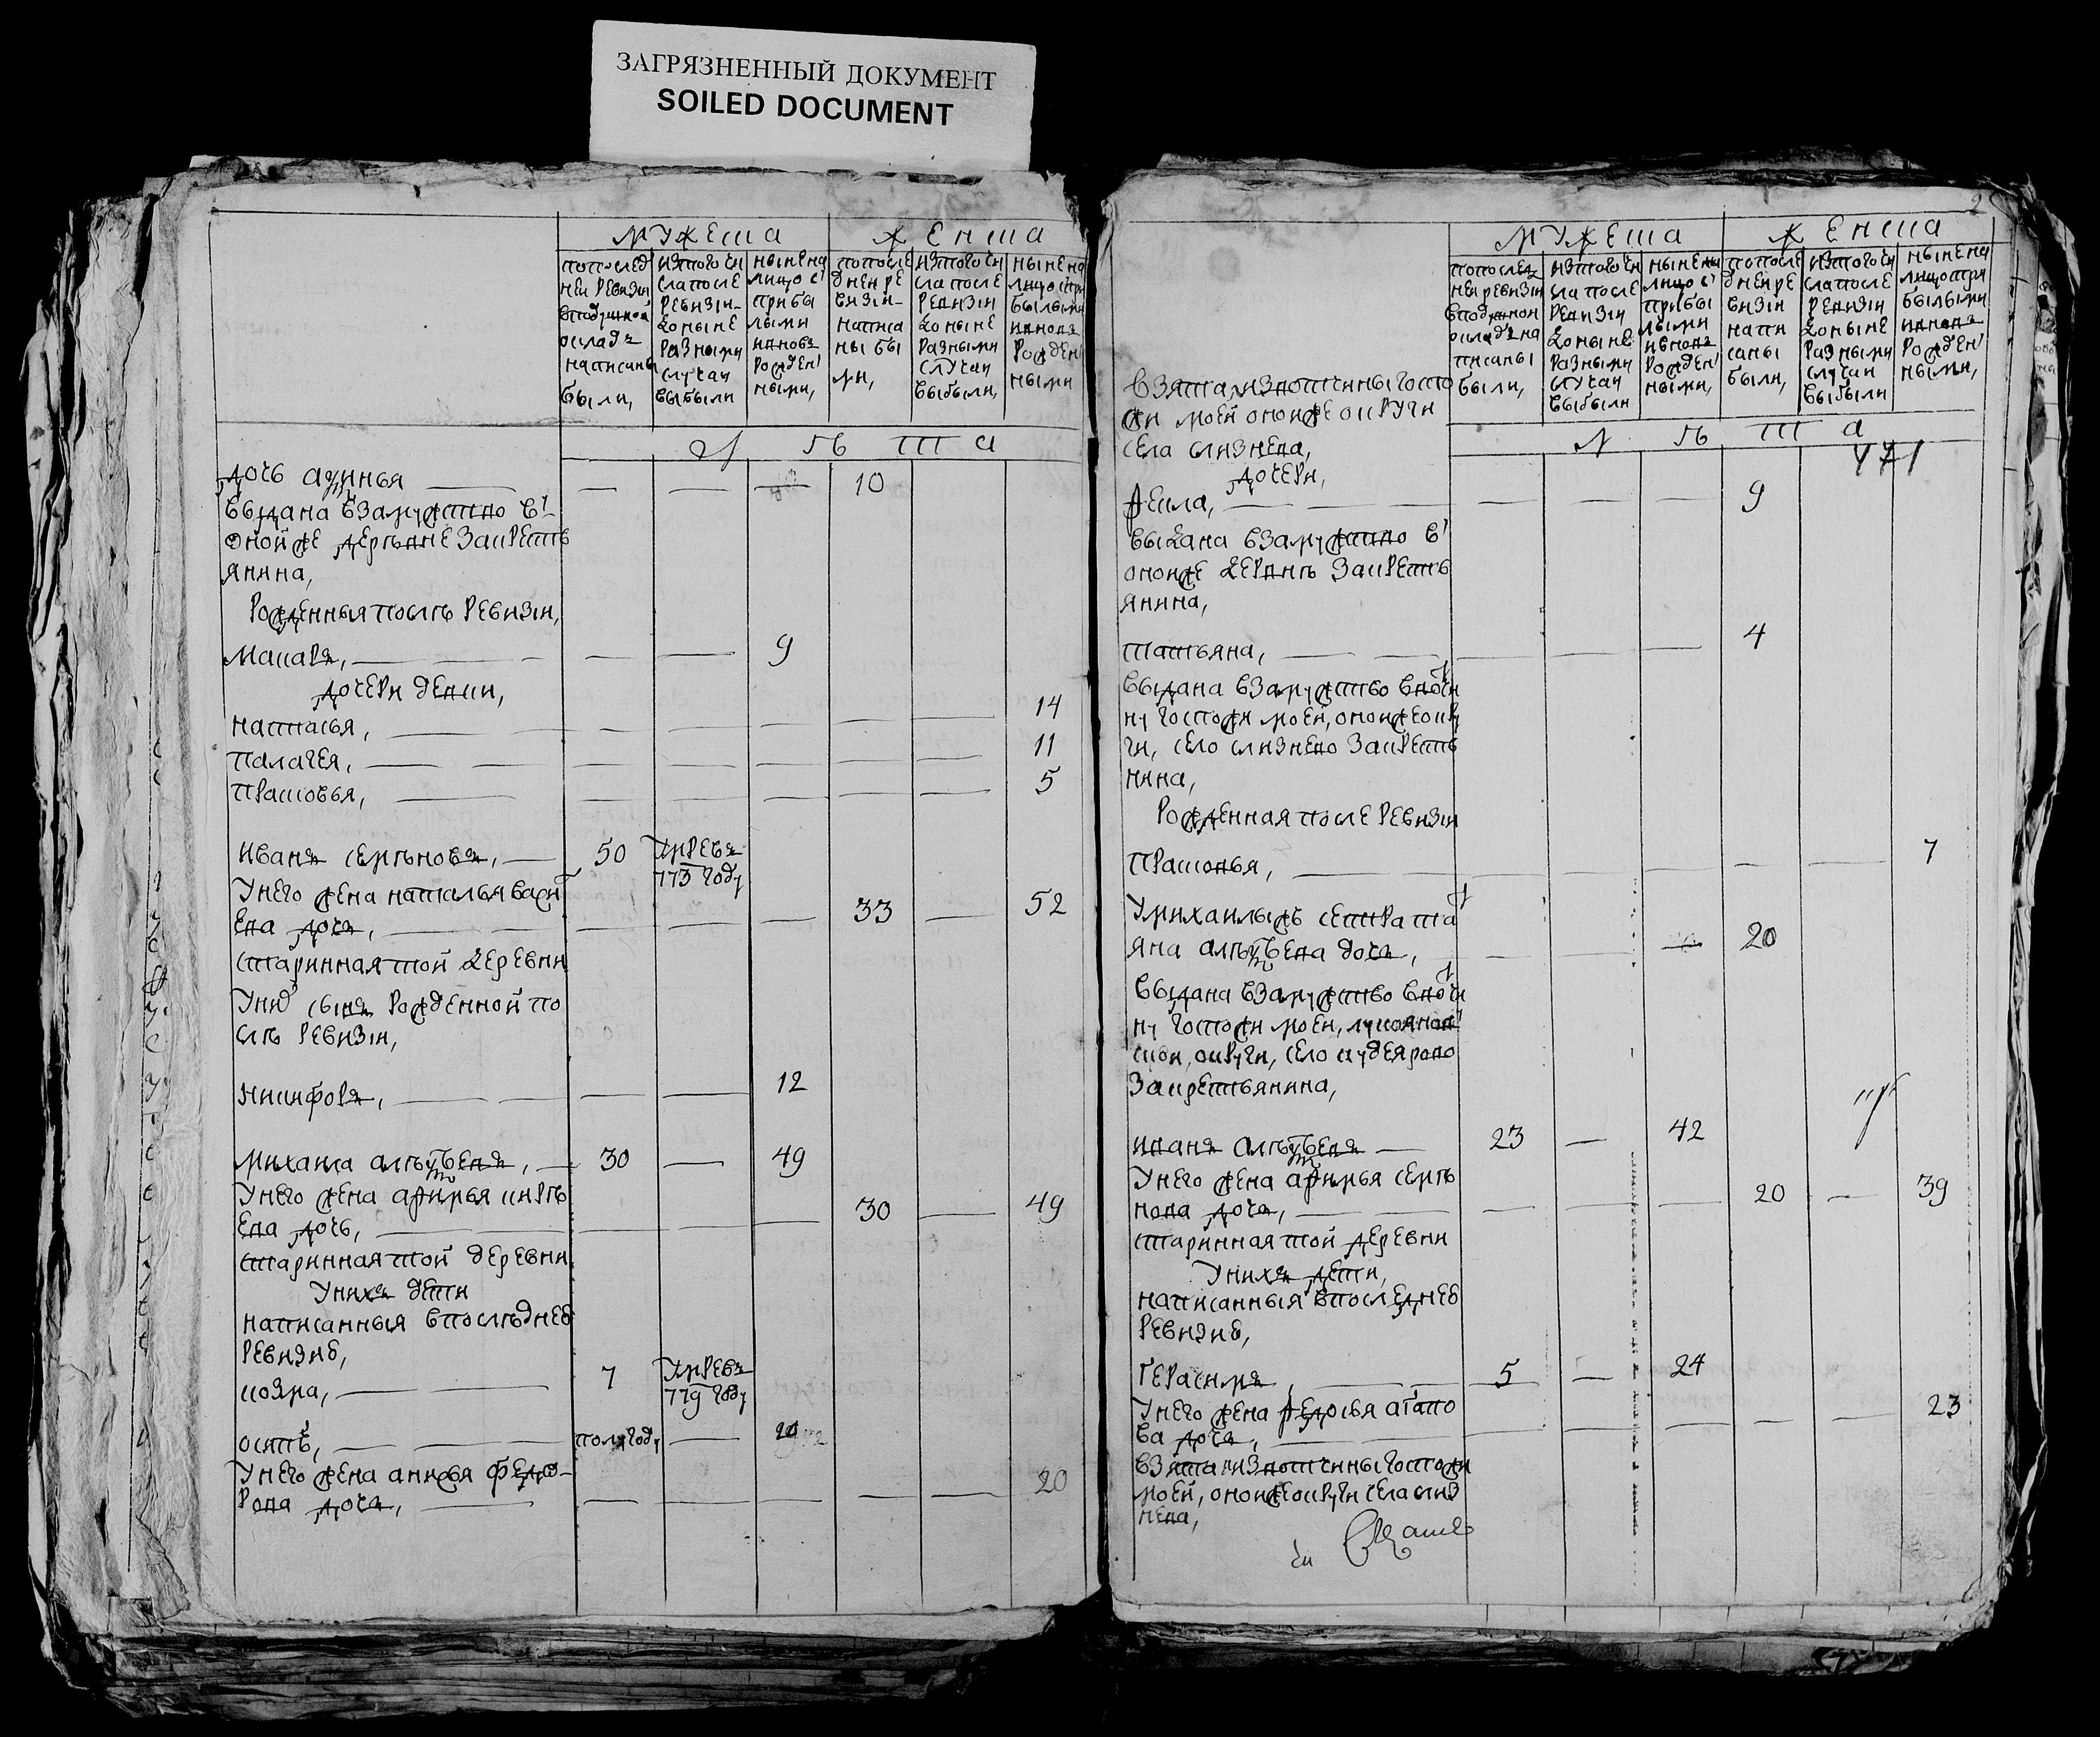 ЗАГРЯЗНЕННЫЙ ДОКУМЕНТ
SOILED DOCUMENT
мужеска
женска
попослед
ней ревизіи
вподушной
окладъ
написаны
были,
изтого чи
сла после
ревизіи
доныне
разными
случаи
выбыли
ныне на
лицо с
прибы
лыми
ивновь
рожден
ными,
попосле
дней ре
визіи
написа
ны бы
ли,
изтого чи
сла после
ревизіи
доныне
разными
случаи
выбыли,
ныне на
лицо спри
былыми
ивновь
рожден
ными
лѣта
дочь 10
выдана взамужство в
оной же деревне закресть
янина,
рожденныя послѣ ревизіи,
макаръ, 9
дочери девки,
настасья, 14
палагея, 11
прасковья, 5
иванъ семеновъ, 50 умре въ
773 году
унего жена наталья васил
ева дочь, 33 52
старинная той деревни
унихъ сынъ рожденной по
слѣ ревизіи,
никифоръ, 12
михаила алѣѯѣевъ, 30 49
унего жена афимья кирѣ
ева дочь, 30 49
старинная той деревни
унихъ дети
написанныя впослѣдней
ревизіи,
козма, 7 умре въ
779 году
осипъ, полугоду 20
унего жена анисья федо
рова дочь, 20
старшина
2
мужеска
женска
попослед
ней ревизіи
вподушной
окладъ на
писаны
были,
изтого чи
сла после
ревизіи
доныне
разными
случаи
выбыли
ныне на
лицо с
прибы
лыми
ивновь
рожден
ными,
попосле
дней ре
визіи
напи
саны
были,
изтого чи
сла после
ревизіи
доныне
разными
случаи
выбыли
ныне на
лицо при
былыми
ивновь
рожден
ными,
взята извотчины госпо
жи моей оной же округи
села слизнева,
лѣта
471
дочери,
фекла, 9
выдана взамужство в
оной же деревнѣ закресть
янина,
татьяна, 4
выдана взамужство вотчи
ну госпожи моей, оной же окру
ги, село слизнево закресть
нина,
рожденная после ревизіи
прасковья, 7
умихаилы жъ сестра тать
яна алѣѯѣева дочь, 20
выдана взамужство вотчи
ну госпожи моей, лукоянов
ской, округи, село кудеярово
закрестьянина,
иванъ алѣѯѣевъ 23 42
унего жена афимья семѣ
нова дочь, 20 39
старинная той деревни
унихъ дети,
написанныя впоследней
ревизіи,
герасимъ, 5 24
унего жена федосья агапо
ва дочь, 23
взята извотчины госпожи
моей, оной же округи села слиз
нева,